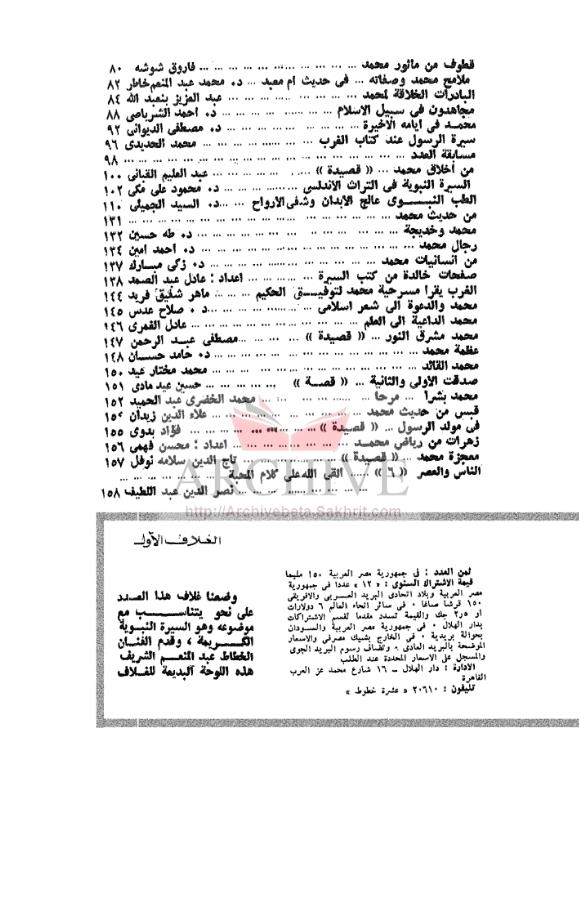 قطوف من مأثور محمد ... ... ... ... ... ... فاروق شوشه ٨٠
ملامح محمد وصفاته ... فى حديث أم معبد ... د. محمد عبد المنعم خاطر ٨٢
البادرات الخلاقة لمحمد ... ... ... ... ... عبد العزيز بنعبد الله ٨٤
مجاهدون فى سبيل الاسلام ... ... ... ... د. احمد الشرباصى ٨٨
محمد فى أيامه الأخيرة ... ... ... ... د. مصطفى الديوانى ٩٢
سيرة الرسول عند كتاب الغرب ... ... ... ... محمد الحديدى ٩٦
مسابقة العدد ... ... ... ... ... ... ... ... ٩٨
من أخلاق محمد ... « قصيدة » ... ... ... عبد العليم القبانى ١٠٠
السيرة النبوية فى التراث الاندلسى ... ... ... د. محمود على مكى ١٠٢
الطب النبوى عالج الأبدان وشفى الأرواح ... د. السيد الجميلى ١١٠
من حديث محمد ... ... ... ... ... ... ... ١٣١
محمد وخديجة ... ... ... ... ... ... د. طه حسين ١٣٢
رجال محمد ... ... ... ... ... ... د. احمد امين ١٣٤
من انسانيات محمد ... ... ... ... ... د. زكى مبارك ١٣٧
صفحات خالدة من كتب السيرة ... ... ... اعداد : عادل عبد الصمد ١٣٨
الغرب يقرأ مسرحية محمد لتوفيق الحكيم ... ... ماهر شفيق فريد ١٤٤
محمد والدعوة الى شعر اسلامى ... ... ... د. صلاح عدس ١٤٥
محمد الداعية الى العلم ... ... ... ... عادل القمرى ١٤٦
محمد مشرق النور ... « قصيدة » ... ... مصطفى عبد الرحمن ١٤٧
عظمة محمد ... ... ... ... ... ... د. حامد حسان ١٤٨
محمد القائد ... ... ... ... ... ... محمد مختار عيد ١٥٠
صدقت الأولى والثانية ... « قصة » ... ... حسين عيد مادى ١٥١
محمد بشرا ... مرحا ... ... ... محمد الخضرى عبد الحميد ١٥٢
قبس من حديث محمد ... ... ... ... علاء الدين زيدان ١٥٤
فى مولد الرسول ... « قصيدة » ... ... ... فؤاد بدوى ١٥٥
زهرات من رياض محمد ... ... ... ... اعداد : محسن فهمى ١٥٦
معجزة محمد ... « قصيدة » ... ... تاج الدين سلامه نوفل ١٥٧
الناس والعصر « ٦ » ... ... القى الله على كلام المحبة ... ... ...
... ... ... ... ... نصر الدين عبد اللطيف ١٥٨
ARCHIVE
http://Archivebeta.Sakhrit.com
الغلاف الأول
وضعنا غلاف هذا العدد
على نحو يتناسب مع
موضوعه وهو السيرة النبوية
الكريمة ، وقدم الفنان
الخطاط عبد المنعم الشريف
هذه اللوحة البديعة للغلاف
ثمن العدد : فى جمهورية مصر العربية ١٥٠ مليما
قيمة الاشتراك السنوى : « ١٢ » عددا فى جمهورية
مصر العربية وبلاد اتحادى البريد العربى والافريقى
١٥٠ قرشا صاغا . فى سائر انحاء العالم ٦ دولارات
او ٢٫٥ جك والقيمة تسدد مقدما لقسم الاشتراكات
بدار الهلال . فى جمهورية مصر العربية والسودان
بحوالة بريدية . فى الخارج بشيك مصرفى والاسعار
الموضحة بالبريد العادى . وتضاف رسوم البريد الجوى
والمسجل على الاسعار المحددة عند الطلب
الادارة : دار الهلال ــ ١٦ شارع محمد عز العرب
القاهرة
تليفون : ٢٠٦١٠ « عشرة خطوط »